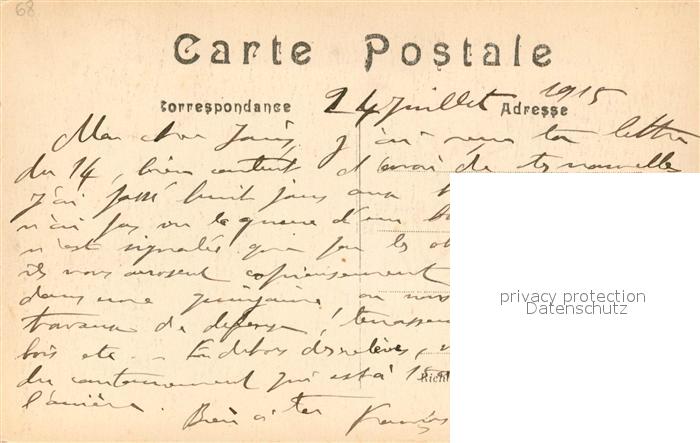 68
Carte Postale
Correspondance
Adresse
24 Juillet 1915
Mon cher j'ai reçu ta lettre
du 14, bien content d'avoir de tes nouvelles
J'ai passé huit jours aux
n'ai pas vu la queue d'un
n'est signalée que par les
ils nous arrosent copieusement
dans une quinzaine on nous
travaux de défense, terrassem
bois etc. - En dehors des relèves,
du cantonnement qui est à 15
l'arrière. Bien à toi Francis
privacy protection
Datenschutz